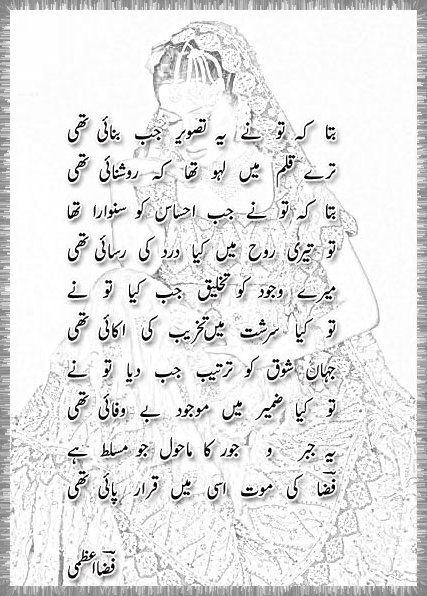 بتا کہ تو نے یہ تصویر جب بنائی تھی
ترے قلم میں لہو تھا کہ روشنائی تھی
بتا کہ تو نے جب احساس کو سنوارا تھا
تو تیری روح میں کیا درد کی رسائی تھی
میرے وجود کو تخلیق جب کیا تو نے
تو کیا سرشت میں تخریب کی اکائی تھی
جہانِ شوق کو ترتیب جب دیا تو نے
تو کیا ضمیر میں موجود بے وفائی تھی
یہ جبر و جور کا ماحول جو مسلط ہے
فضاؔ کی موت اسی میں قرار پائی تھی
فضاؔ اعظمی